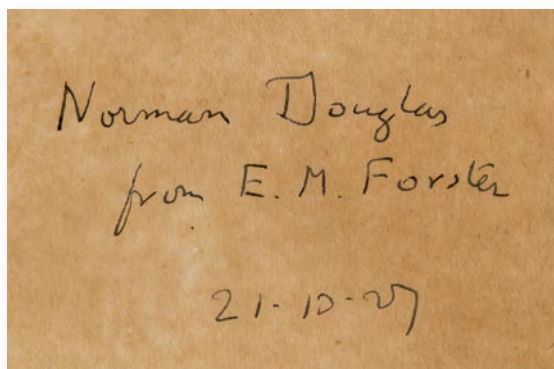 Norman Douglas
from E. M. Forster
21-10-27